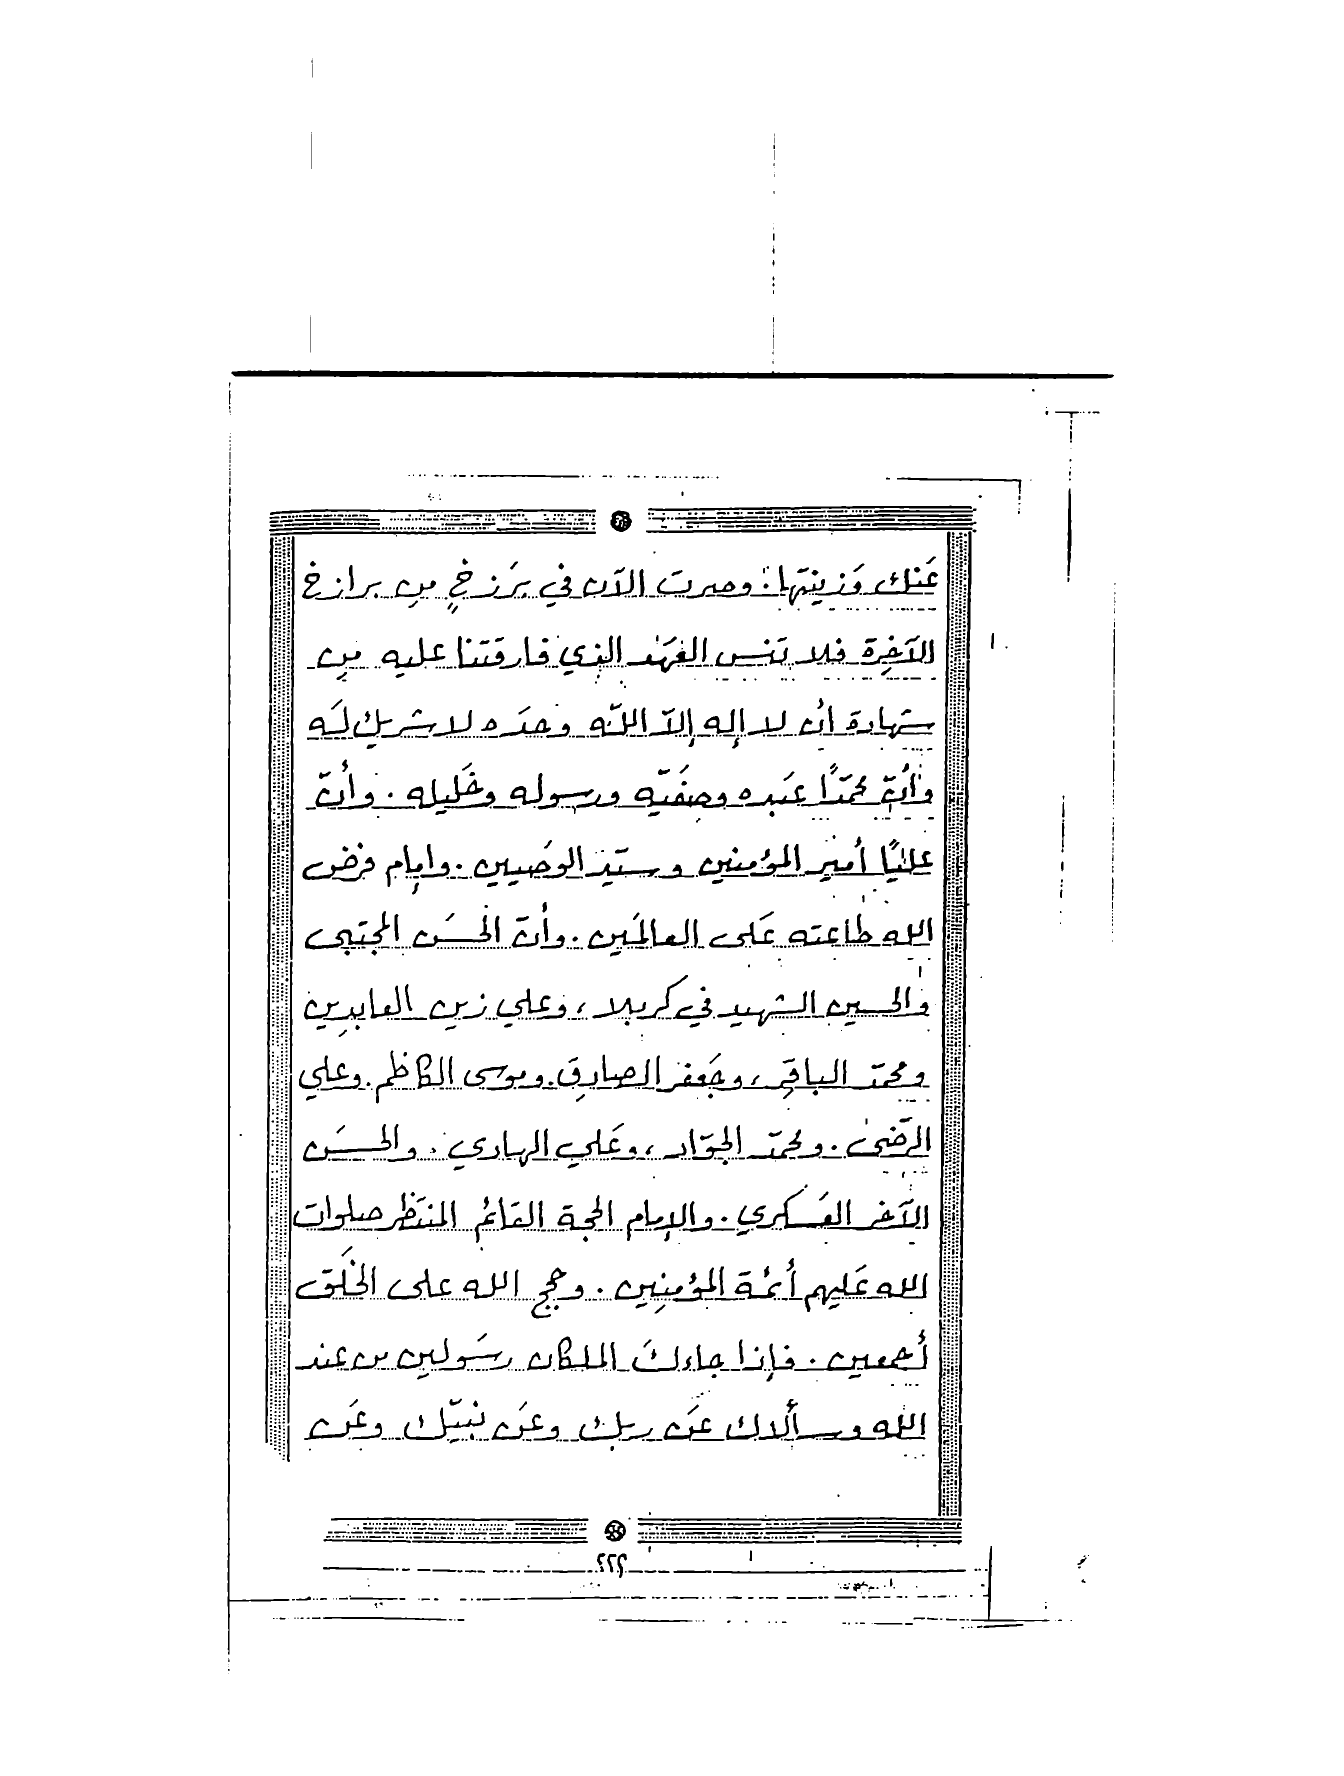 عَنك وَزينتها: وصرت الآن في بَرَزخٍ مِن برازخ
الآخِرة فلا تَنس العَهَد الذي فارقتنا عليه مِن
شهادة أن لا إله إلّا اللّه وحدَه لا شريك لَه
وأنّ محمّدًا عبَده وصفَيّه ورسوله وخَليله . وأنّ
عليًا أمير المؤمنين وسيّد الوصَيين . وإمام فرض
الله طاعته عَلى العالمَين . وأنّ الحسَن المجتبى
والحسين الشهيد في كربلا ، وعلي زين العابدِين
ومحمّد الباقِر ، وجَعفر الصادِق . وموسى الكاظم . وعلي
الرّضىٰ . ومحمّد الجوّاد ، وعَلي الهادي . والحسَن
الآخر العَسكري . والإمام الحجة القَائم المنتَظر صلوات
الله عَليهم أئمة المؤمنِين . وحجج الله على الخلَق
أجمعين . فإذا جاءكَ الملكان رسَولين من عند
الله وسألاك عَن ربك وعَن نبيّك وعَن
٢٢٢